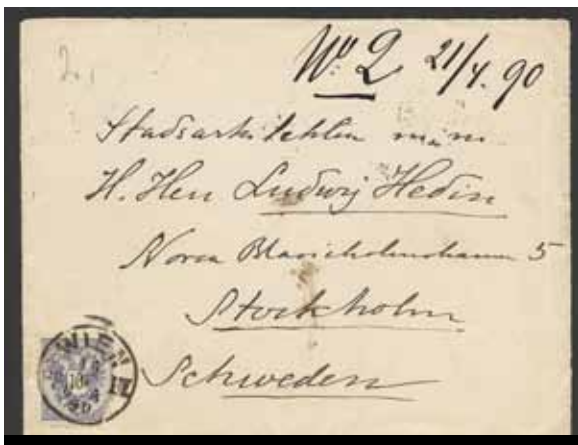 No. 2 21/4. 90
Stadsarkitekten m.m.
H. Herr Ludwig Hedin
Norra Blasieholmshamn 5
Stockholm
Schweden
WIEN